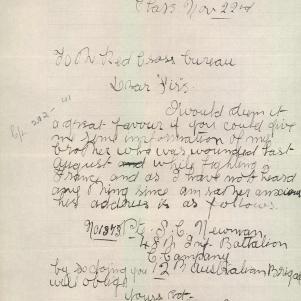 Nov 22nd
To the Red Cross Bureau
Dear Sirs
I would deem it
a great favour if you could give
me some information of my
brother who was wounded last
August and while fighting in
France and as I have not heard
any thing since am rather anxious
his address is as follows.
Pte S. C. Newman,
48th Inf Battalion
C Company
by so doing you Australian Brigade
will oblige
Yours